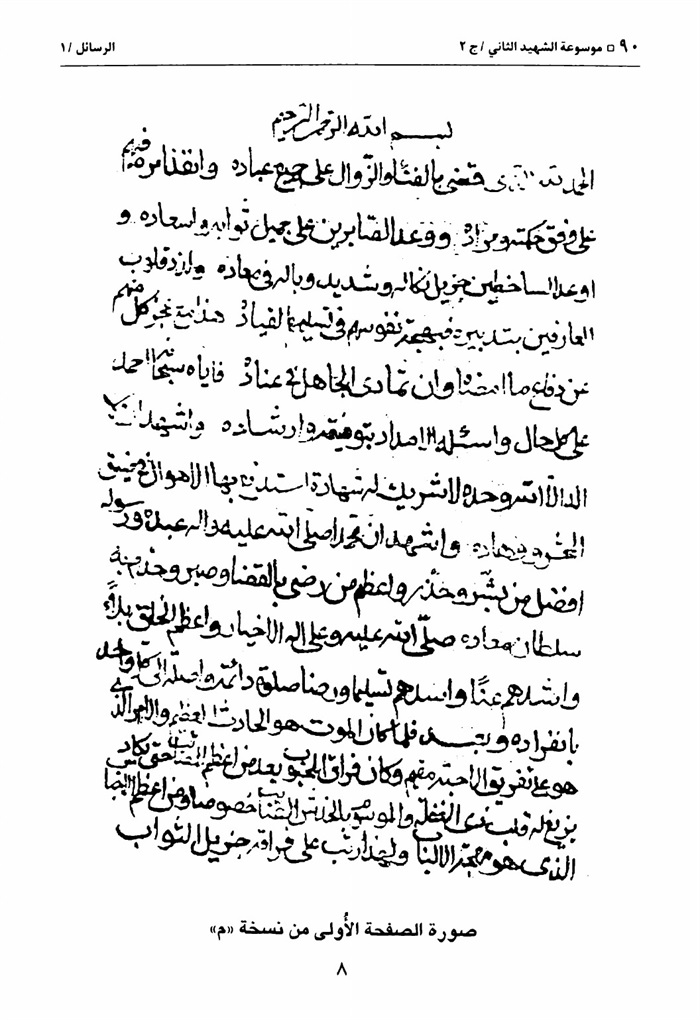 ٩٠ □ موسوعة الشهيد الثاني / ج ٢
الرسائل / ١
بسم الله الرحمن الرحيم
الحمد لله الذي قضى بالفناء والزوال على جميع عباده وانفذ امره فيهم
على وفق حكمته ومراده ووعد الصابرين على جميل ثوابه واسعاده و
اوعد الساخطين جزيل نكاله وشديد وباله في معاده قلوب
العارفين بتدبيره فبهجة نفوسهم في تسليمها لقياده هذا مع عجز كل منهم
عن دفاع ما امضاه وان تمادى الجاهل في عناده فاياه سبحانه احمد
على كل حال واسئله الامداد بتوفيقه وارشاده واشهد ان لا
اله الا الله وحده لا شريك له شهادة استدفع بها الاهوال في ضيق
المحشر ووهاده واشهد ان محمدا صلى الله عليه واله عبده ورسوله
افضل من بشر وحذر واعظم من رضي بالقضا وصبر
سلطان معاده صلى الله عليه وعلى اله الاخيار واعظم الخلق بلاء
واشدهم عناً واسدهم تسليما ورضا صلوة دائمة واصلة الى كل واحد
بانفراده وبعد فلما كان الموت هو الحادث العظيم والامر الذي
هو على تفريق الاحبة مقيم وكان فراق المحبوب يعد من اعظم المصائب حتى يكاد
يزيغ له قلب ذي العقل والموسوم بالحدس الصائب خصوصا ومن اعظم
الذي هو مهجة الالباب ولهذا رتب على فراقه جزيل الثواب
صورة الصفحة الأُولى من نسخة «م»
٨